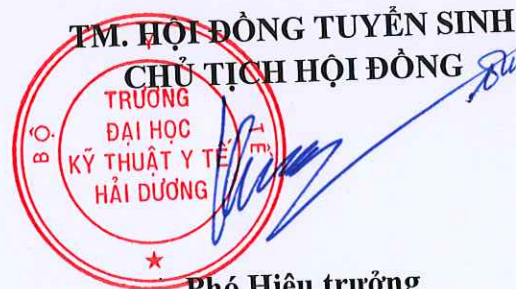 TM. HỘI ĐỒNG TUYỂN SINH
CHỦ TỊCH HỘI ĐỒNG
BỘ Y TẾ
TRƯỜNG
ĐẠI HỌC
KỸ THUẬT Y TẾ
HẢI DƯƠNG
Phó Hiệu trưởng